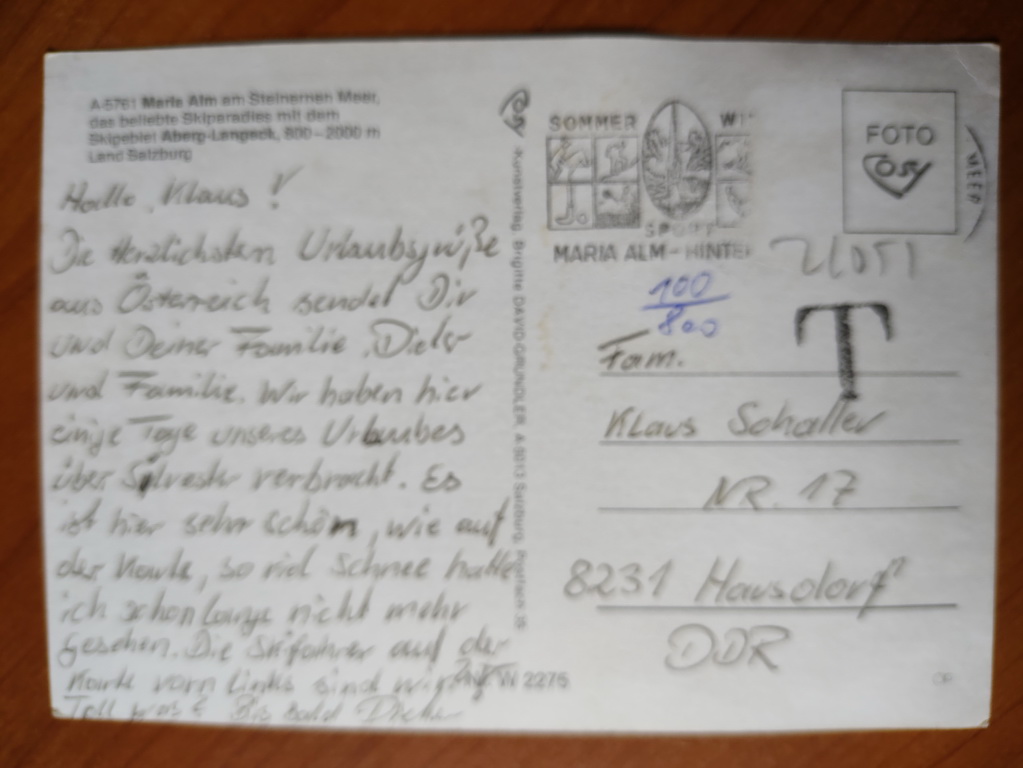 A-5761 Maria Alm am Steinernen Meer,
das beliebte Skiparadies mit dem
Skigebiet Aberg-Langeck, 800-2000 m
Land Salzburg
Hallo Klaus!
Die Herzlichsten Urlaubsgrüße
aus Österreich sendet Dir
und Deiner Familie, Dieter
und Familie. Wir haben hier
einige Tage unseres Urlaubes
über Silvester verbracht. Es
ist hier sehr schön, wie auf
der Karte, so viel Schnee hatte
ich schon lange nicht mehr
gesehen. Die Skifahrer auf der
Karte vorn links sind wir,
Toll was? Bis bald Dieter
Kunstverlag Brigitte DAVID-GRUNDLER, Salzburg, Postfach
W 2275
SOMMER WI
SPORT
MARIA ALM-HINTE
MEER
FOTO
100
800
T
Fam.
Klaus Schaller
NR. 17
8231 Hausdorf
DDR